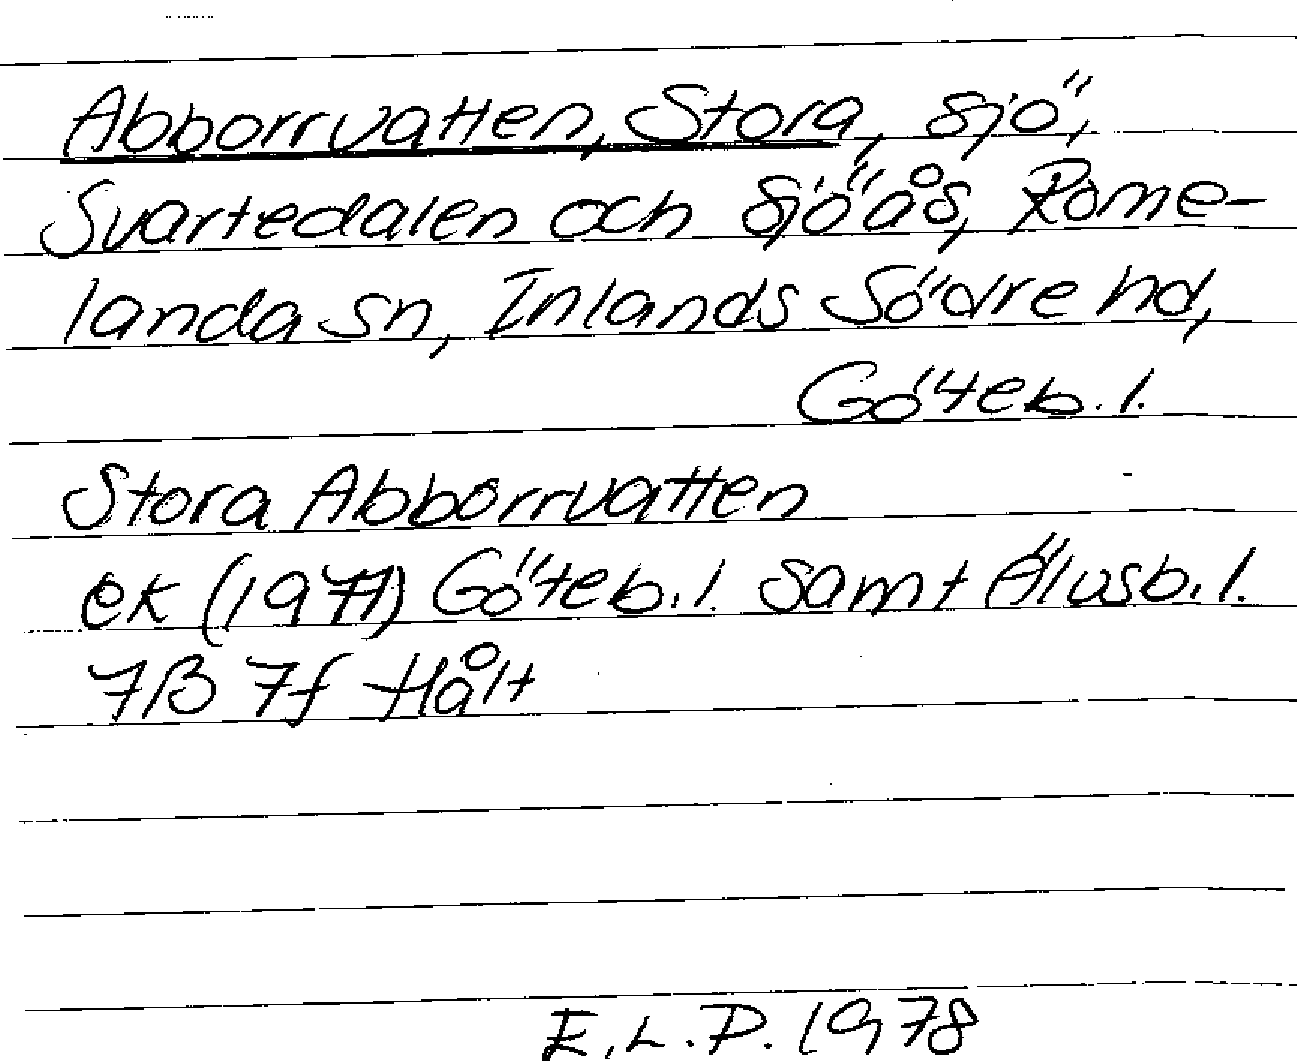 Abborrvatten, Stora, sjö,
Svartedalen och Sjöås, Rome-
landa sn, Inlands Södre hd,
Göteb. l.
Stora Abborrvatten
ek (1977) Göteb. l. samt Älvsb. l.
7B 7f Hålt
E.L.P. 1978